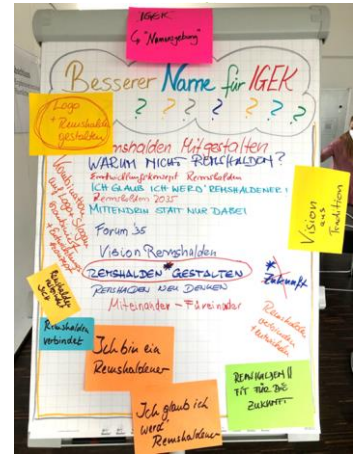 IGEK
↳ "Namensgebung"
Besserer Name für IGEK
? ? ? ? ? ?
Logo
+ Remshalden
gestalten
Remshalden Mitgestalten
WARUM NICHT REMSHALDEN?
Entwicklungskonzept Remshalden
ICH GLAUB ICH WERD' REMSHALDENER!
Remshalden 2035
MITTENDRIN STATT NUR DABEI
Forum 35
Vision Remshalden
REMSHALDEN GESTALTEN
REMSHALDEN NEU DENKEN
Miteinander – Füreinander
Vision
aus
Tradition
Zukunft
Remshalden
verbinden
Remshalden
Remshalden
verbindet
Ich bin ein
Remshaldener
Ich glaub ich
werd'
Remshaldener
REMSHALDEN
FIT FÜR DIE
ZUKUNFT